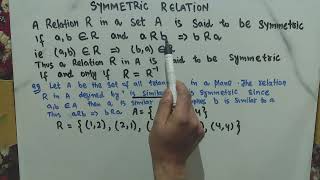 SYMMETRIC RELATION
A Relation R in a set A is Said to be Symmetric
If a,b ∈ R and a R b ⇒ b R a
ie (a,b) ∈ R ⇒ (b,a) ∈ R
Thus a Relation R in A is Said to be Symmetric
If and only if R = R
eg Let A be the Set of all in a Plane. The relation
R in A defined by 'is Similar is Symmetric since
a,b ∈ A then a is Similar implies b is Similar to a
Thus aRb ⇒ bRa A = { 4}
R = {(1,2), (2,1), (4,4)}